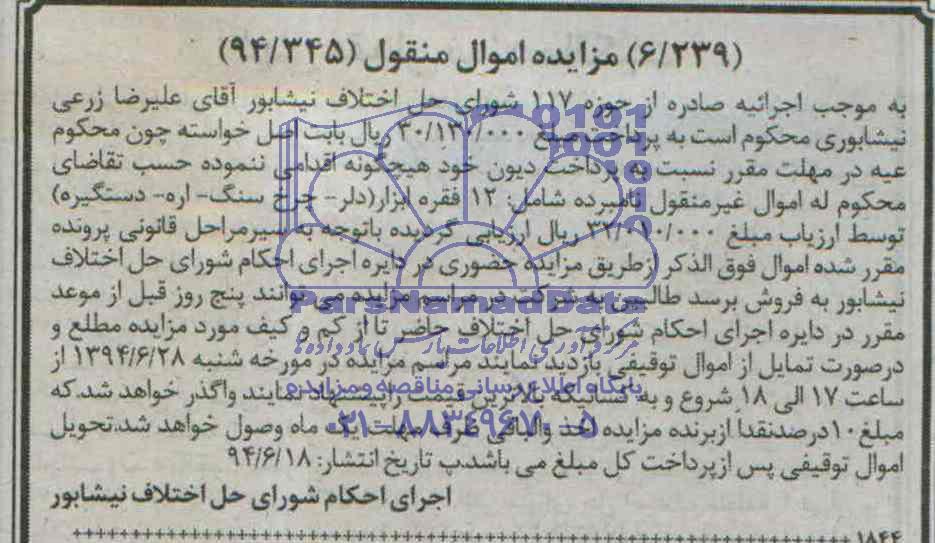 (۶/۲۳۹) مزایده اموال منقول (۹۴/۳۴۵)
به موجب اجرائیه صادره از حوزه ۱۱۷ شورای حل اختلاف نیشابور آقای علیرضا زرعی
نیشابوری محکوم است به پرداخت مبلغ ۳۰/۱۳۰/۰۰۰ ریال بابت اصل خواسته چون محکوم
عیه در مهلت مقرر نسبت به پرداخت دیون خود هیچگونه اقدامی ننموده حسب تقاضای
محکوم له اموال غیرمنقول نامبرده شامل: ۱۲ فقره ابزار(دلر- چرخ سنگ- اره- دستگیره)
توسط ارزیاب مبلغ ریال ارزیابی گردیده باتوجه به سیرمراحل قانونی پرونده
مقرر شده اموال فوق الذکر ازطریق مزایده حضوری در دایره اجرای احکام شورای حل اختلاف
نیشابور به فروش برسد طالبین به شرکت در مراسم مزایده می توانند پنج روز قبل از موعد
مقرر در دایره اجرای احکام شورای حل اختلاف حاضر تا از کم و کیف مورد مزایده مطلع و
درصورت تمایل از اموال توقیفی بازدید نمایند مراسم مزایده در مورخه شنبه ۱۳۹۴/۶/۲۸ از
ساعت ۱۷ الی ۱۸ شروع و به کسانیکه بالاترین قیمت را پیشنهاد نمایند واگذر خواهد شد.که
مبلغ۱۰درصدنقداً ازبرنده مزایده اخذ والباقی ظرف مهلت یک ماه وصول خواهد شد.تحویل
اموال توقیفی پس ازپرداخت کل مبلغ می باشد.پ تاریخ انتشار: ۹۴/۶/۱۸
اجرای احکام شورای حل اختلاف نیشابور
۱۸۴۴
ParsNamadData
پایگاه اطلاع رسانی مناقصه و مزایده
۰۲۱-۸۸۳۴۹۶۷۰-۵